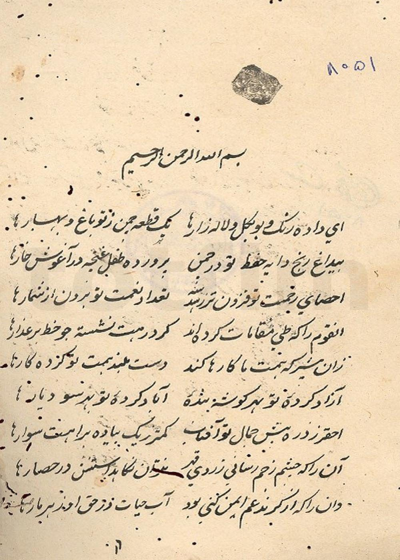 ۸۰۵۱
بسم الله الرحمن الرحیم
ای داده رنگ و بو گل و لاله زارها یک قطعه چمن ز تو باغ و بهارها
بیداغ رنج دایه حفظ تو در چمن پرورده طفل غنچه در آغوش خارها
احصای رحمت تو فزون تر ز تعداد نعمت تو برون از شمارها
آنقوم را که طی مقامات کرده‌اند کمر در نشسته چو خط بر عذارها
زان شیر که همت ما کارها کند دست بلند همت تو کرده کارها
آزاد کرده تو بهر گوشه بنده آباد کرده تو بهر سو دیارها
احقر ز ذره پیش جمال تو آفتاب کمتر ز یک پیاده براهت سوارها
آن را که چشم زخم رسانی ز روی قهر نتوان نگاه در حصارها
وان را که از گزند غم ایمن کنی بود آب حیات در